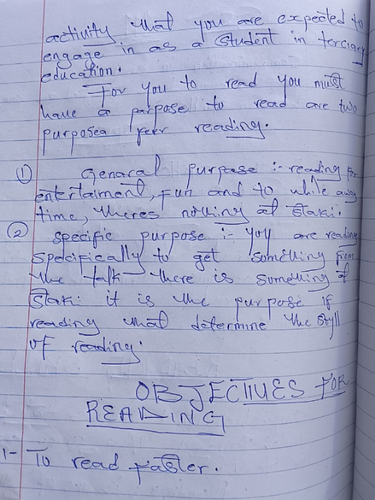 activity that you are expected to
engage in as a student in terciary
education.
For you to read you must
have a parpose to read are two
purposea peer reading.
① Genaral purpose :- reading for
entertaiment, fun and to while away
time, theres nothing at staki.
② Specific purpose :- you are reading
specifically to get something from
the talk there is something at
staki it is the purpose if
reading that determine the styll
of reading.
OBJECTIVES FOR
READING
1- To read faster.